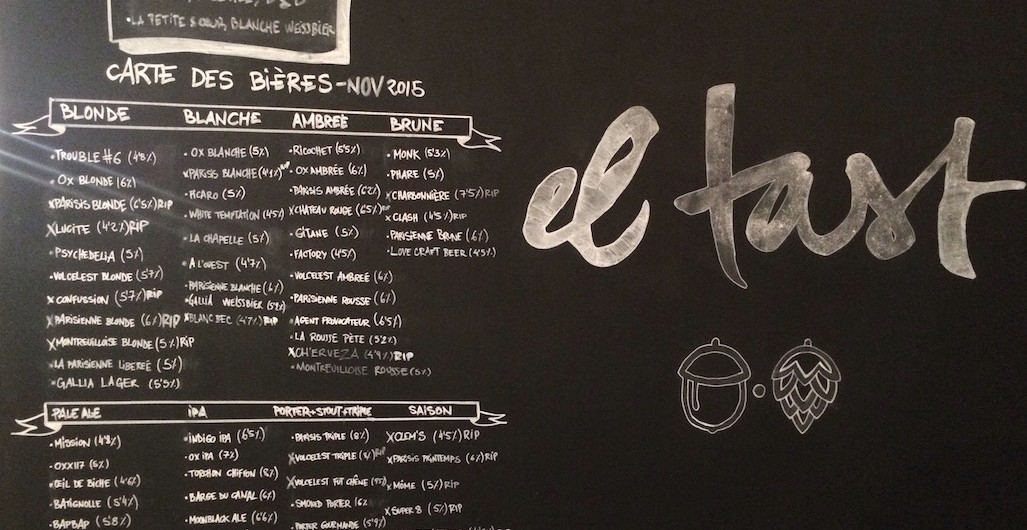 •LA PETITE SŒUR, BLANCHE WEISSBIER
CARTE DES BIÈRES-NOV 2015
BLONDE
•TROUBLE #6 (4'8%)
•OX BLONDE (6%)
XPARISIS BLONDE (6'5%)RIP
XLUCITE (4'2%)RIP
•PSYCHEDELIA (5%)
•VOLCELEST BLONDE (5'7%)
X CONFUSSION (5'7%)RIP
XPARISIENNE BLONDE (6%)RIP
XMONTREUILLOISE BLONDE (5%)RIP
•LA PARISIENNE LIBEREÉ (5%)
•GALLIA LAGER (5'5%)
BLANCHE
•OX BLANCHE (5%)
XPARISIS BLANCHE (4'1%)RIP
•PICARO (5%)
•WHITE TEMPTATION (4'5%)
•LA CHAPELLE (5%)
•A L'OUEST (4'7%)
•PARISIENNE BLANCHE (6%)
•GALLIA WEISSBIER
XBLANC BEC (4'7%)RIP
AMBREÉ
•RICOCHET (5'5%)
•OX AMBRÉE (6%)
•PARISIS AMBRÉE (6'2%)
XCHATEAU ROUGE (6'5%)RIP
•GITANE (5%)
•FACTORY (4'5%)
•VOLCELEST AMBREÉ (6%)
•PARISIENNE ROUSSE (6%)
•AGENT PROVOCATEUR (6'5%)
•LA ROUSSE PÈTE (5'2%)
XCH'ERVEZA (4'9%)RIP
•MONTREUILLOISE ROUSSE (5%)
BRUNE
•MONK (5'3%)
•PHARE (5%)
XCHARBONNIÈRE (7'5%)RIP
XCLASH (4'5%)RIP
•PARISIENNE BRUNE (6%)
•LOVE CRAFT BEER (4'5%)
PALE ALE
•MISSION (4'8%)
•OXX117 (5%)
•ŒIL DE BICHE (4'6%)
•BATIGNOLLE (5'4%)
•BAPBAP (5'8%)
IPA
•INDIGO IPA (6'5%)
•OX IPA (7%)
•TORCHON CHIFFON (8%)
•BARGE DU CANAL (6%)
•MOONBLACK ALE (6'6%)
PORTER+STOUT+TRIPLE
•PARISIS TRIPLE (8%)
XVOLCELEST TRIPLE RIP
XVOLCELEST FUT CHÊNE
•SMOKED PORTER (6%)
•PORTER GOURMANDE (5'9%)
SAISON
XCLEM'S (4'5%)RIP
XPARISIS PRINTEMPS (6%)RIP
XMÔME (5%)RIP
XSUPER 8 (5%)RIP
el tast